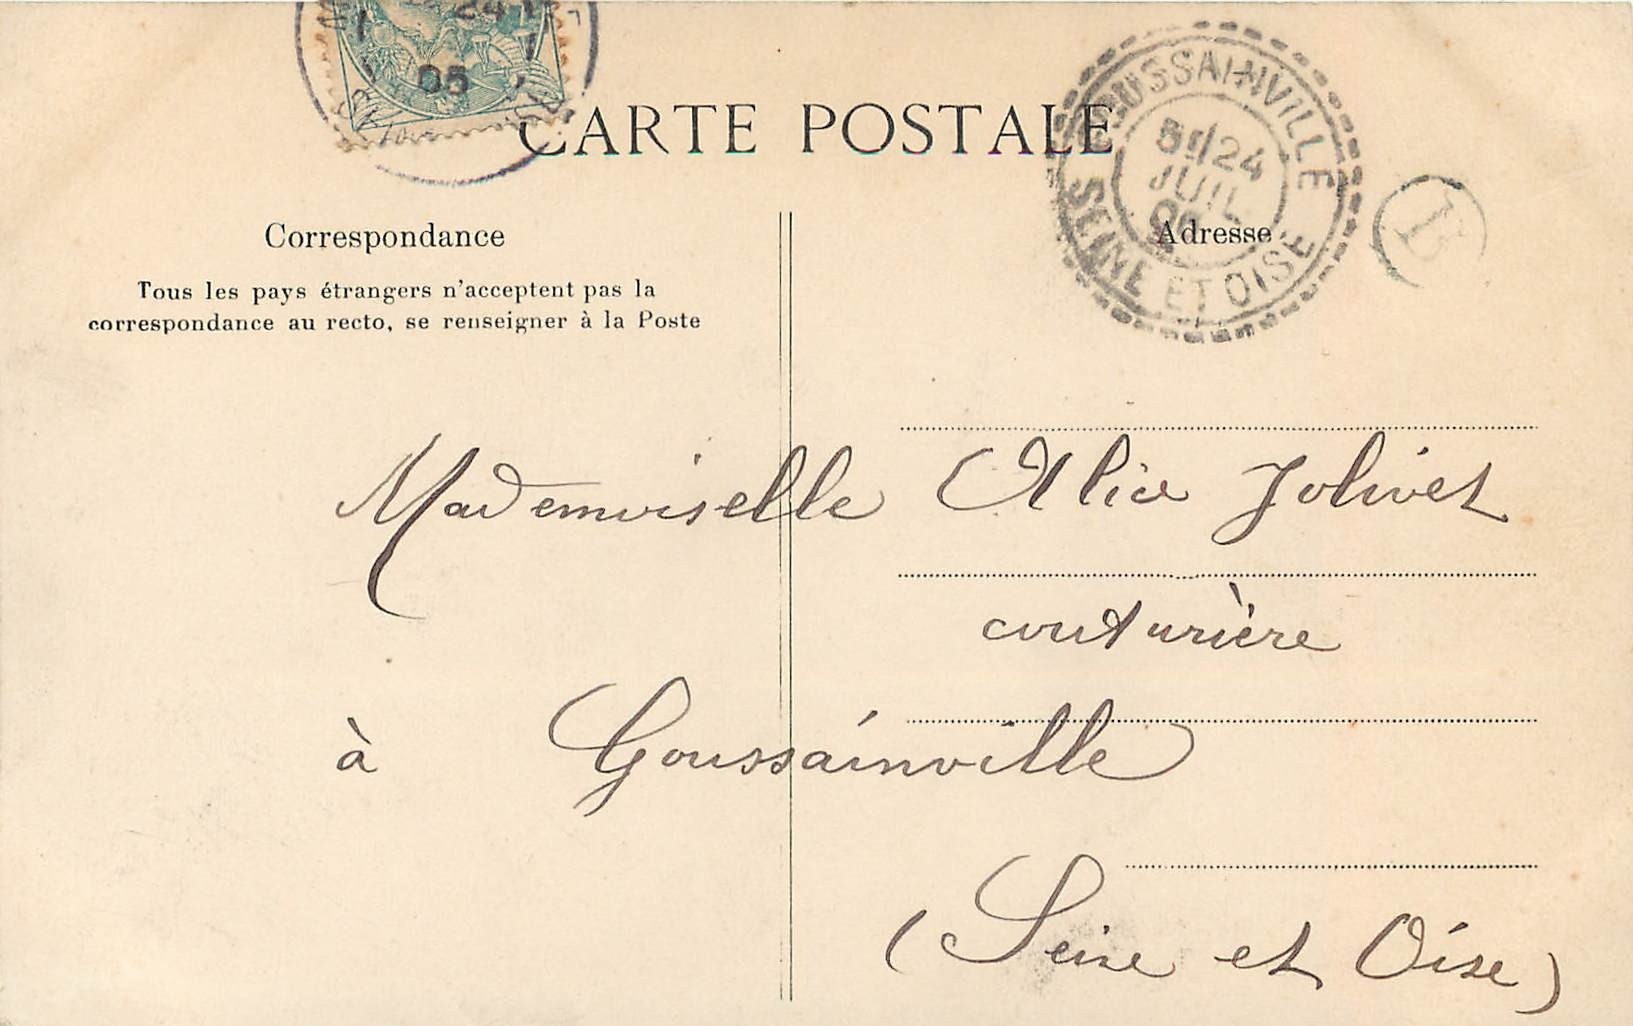 24
05
CARTE POSTALE
GOUSSAINVILLE
24
JUIL
SEINE ET OISE
Correspondance
Adresse
Tous les pays étrangers n'acceptent pas la
correspondance au recto, se renseigner à la Poste
Mademoiselle Alice Jolivet
couturière
à Goussainville
(Seine et Oise)